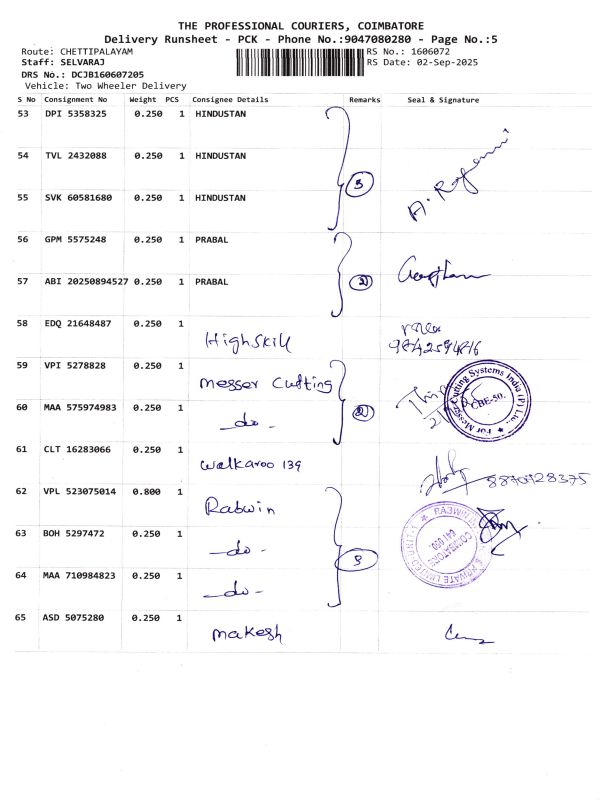 THE PROFESSIONAL COURIERS, COIMBATORE
Delivery Runsheet - PCK - Phone No.:9047080280 - Page No.:5
Route: CHETTIPALAYAM RS No.: 1606072
Staff: SELVARAJ RS Date: 02-Sep-2025
DRS No.: DCJB160607205
Vehicle: Two Wheeler Delivery
S No Consignment No Weight PCS Consignee Details Remarks Seal & Signature
53 DPI 5358325 0.250 1 HINDUSTAN
54 TVL 2432088 0.250 1 HINDUSTAN
3
55 SVK 60581680 0.250 1 HINDUSTAN
56 GPM 5575248 0.250 1 PRABAL
57 ABI 20250894527 0.250 1 PRABAL
2
58 EDQ 21648487 0.250 1
Highskill
59 VPI 5278828 0.250 1
Messer Cutting
For Messer Cutting Systems India (P) Ltd.,
CBE-50.
60 MAA 575974983 0.250 1
2
-do-
61 CLT 16283066 0.250 1
Walkaroo 139
62 VPL 523075014 0.800 1
Rabwin
63 BOH 5297472 0.250 1
-do-
3
COIMBATORE
641 050.
64 MAA 710984823 0.250 1
-do-
65 ASD 5075280 0.250 1
Makesh